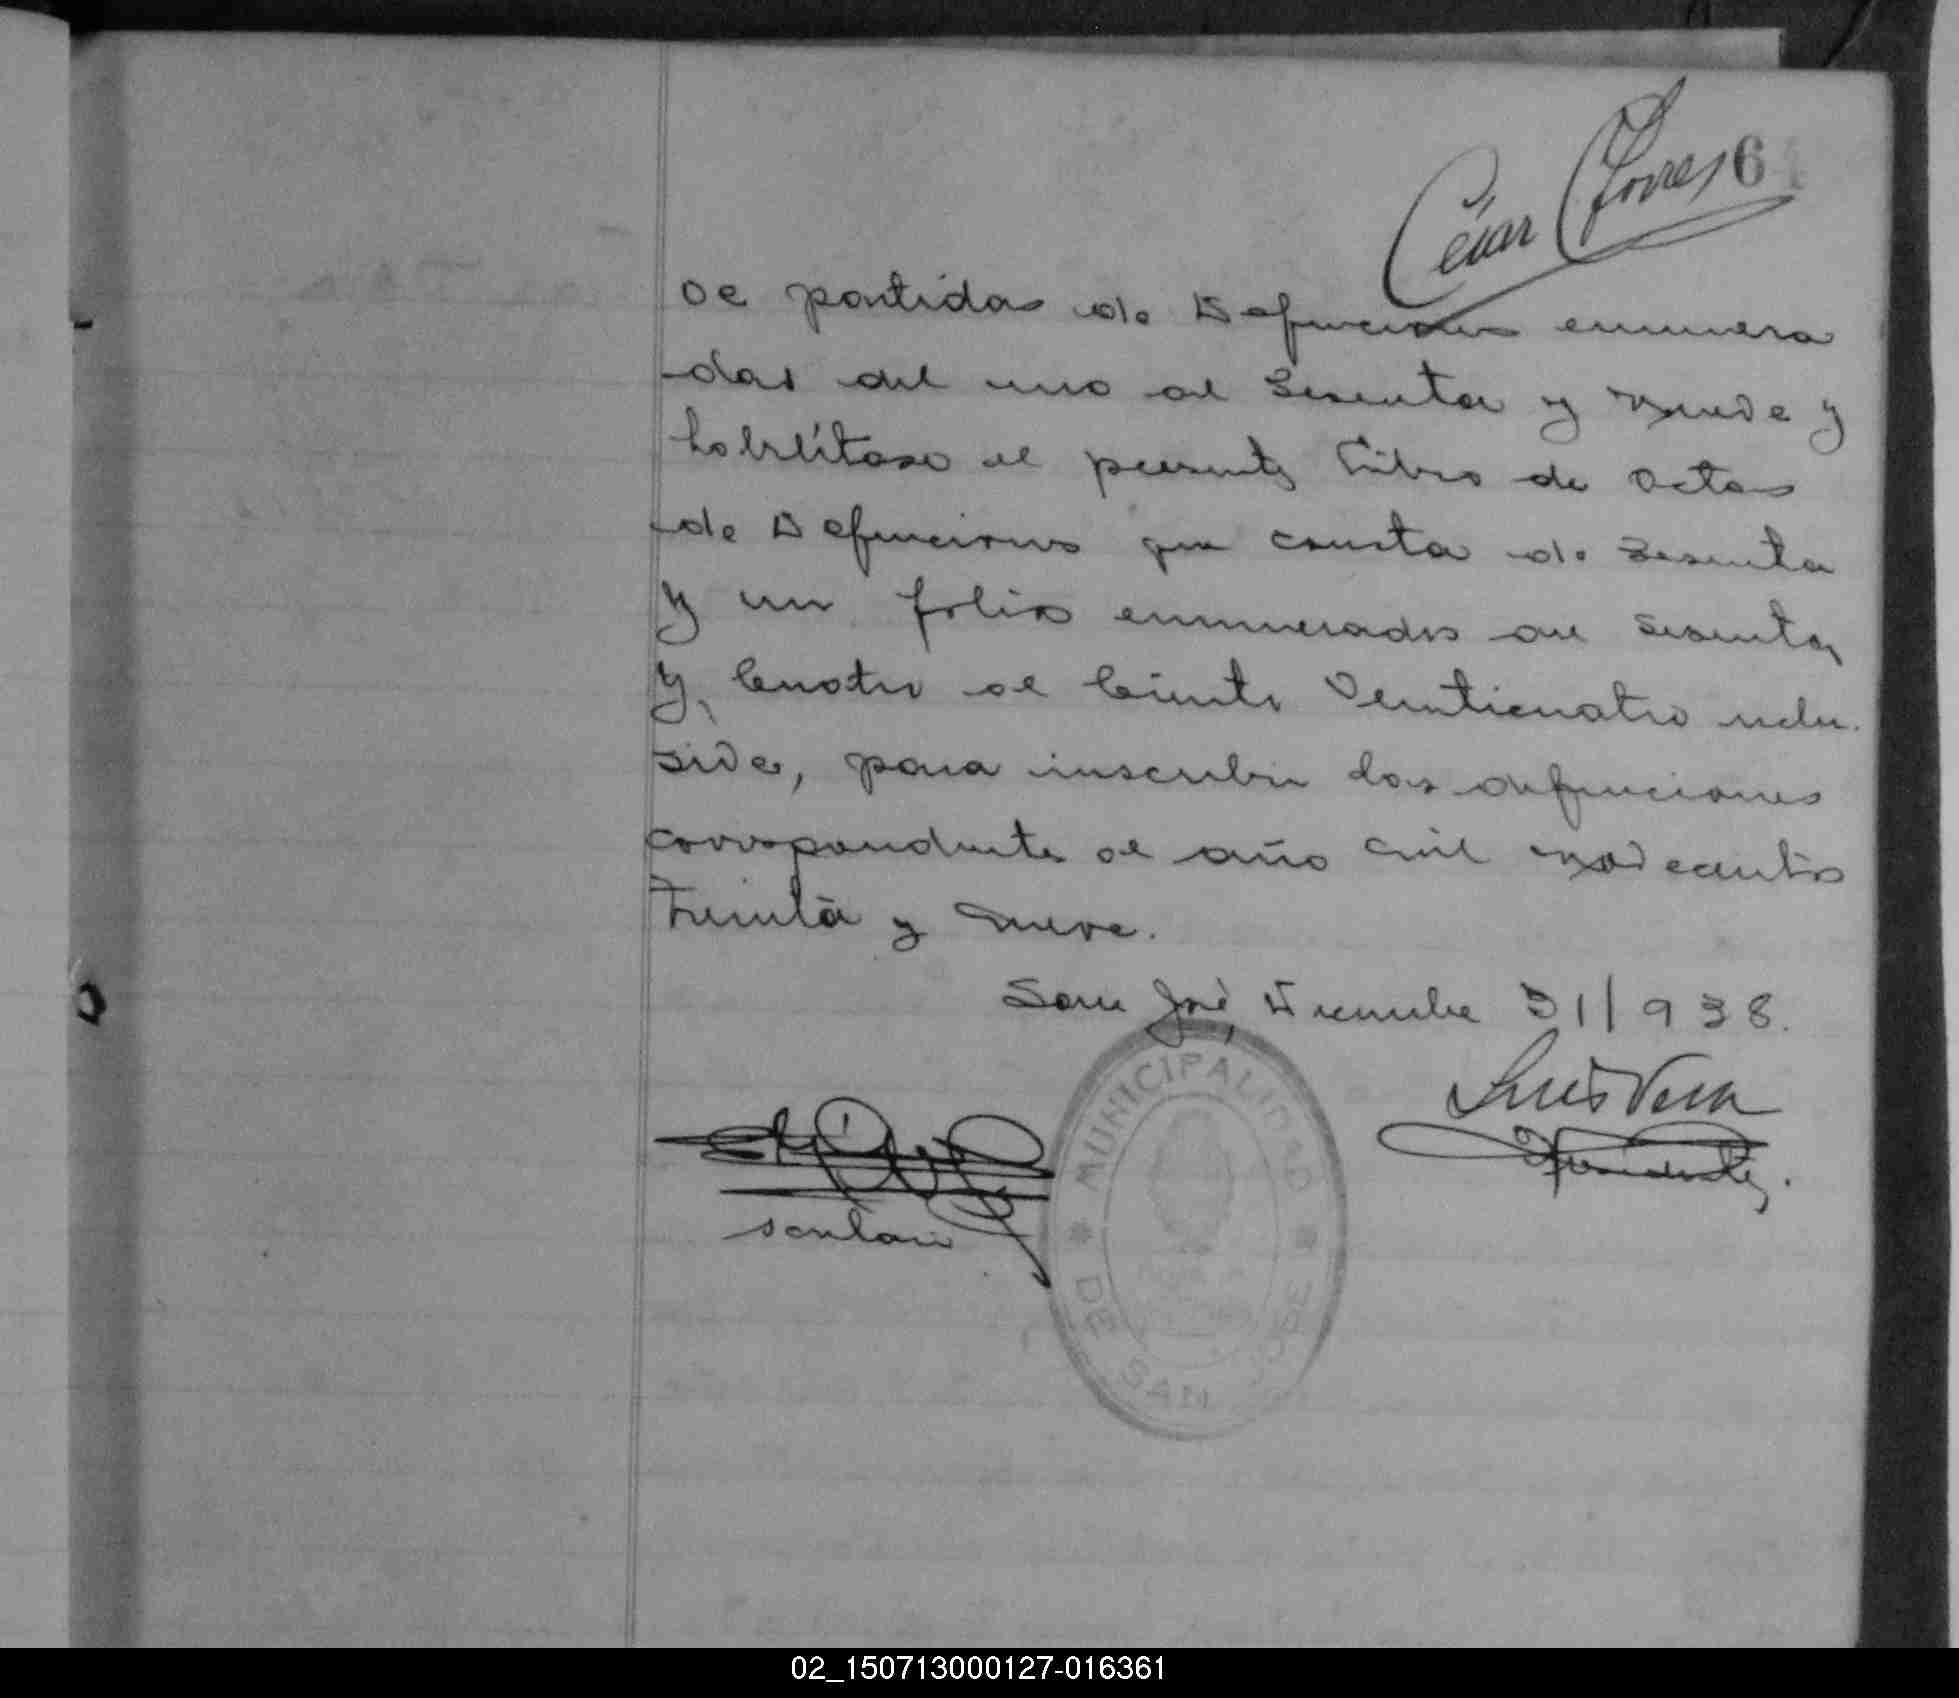 César Torres 64
de partidas de Defunciones enumera
das del uno al Sesenta y nueve y
habilítase el presente Libro de actas
de Defunciones que consta de Sesenta
y un folios enumerados del sesenta
y Cuatro al Ciento Veinticuatro inclu.
sive, para inscribir las defunciones
correspondientes al año civil novecientos
Treinta y nueve.
San José, Diciembre 31/938.
Luis Vera
Presidente.
secretario
MUNICIPALIDAD DE SAN JOSE
02_150713000127-016361